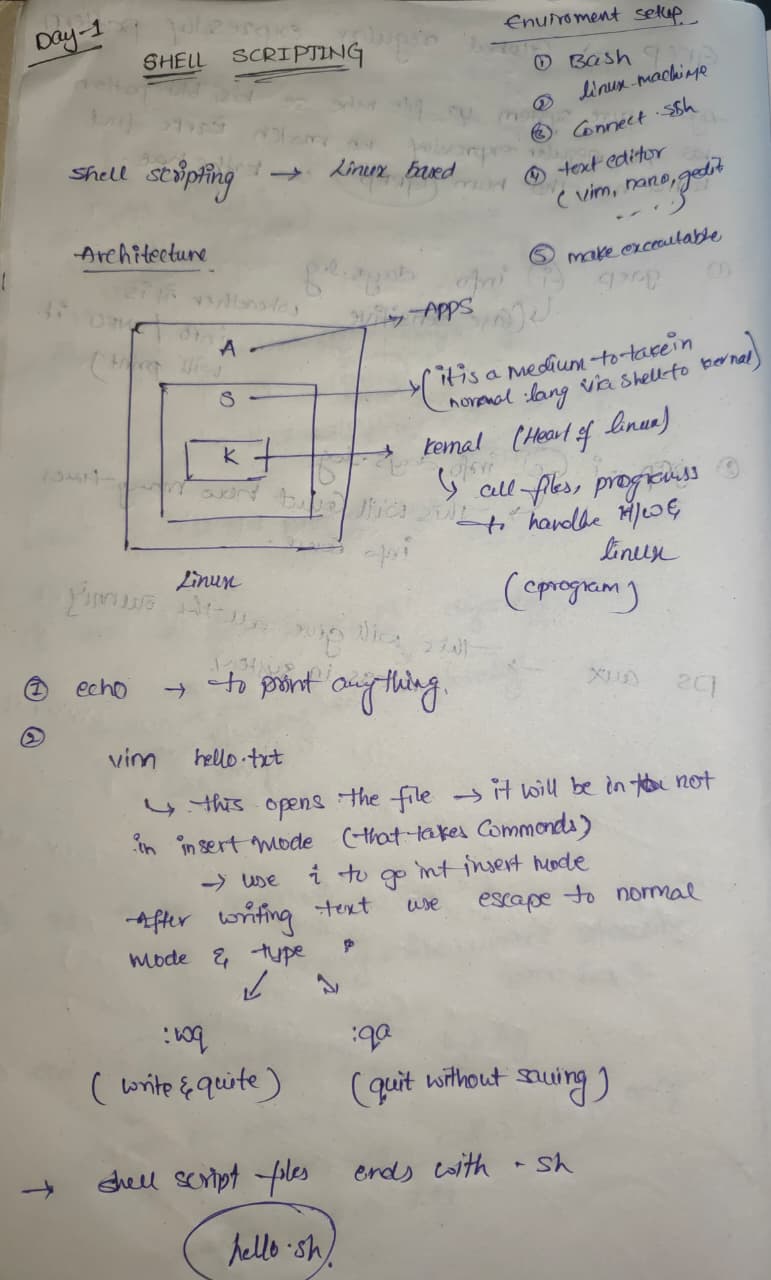 Day-1
SHELL SCRIPTING
Enviroment setup
① Bash
② linux machine
③ Connect ssh
④ text editor
(vim, nano, gedit
....)
⑤ make excecutable
Shell scripting → Linux based
Architecture
A → APPS
S → (it is a medium to take in
normal lang via shell to kernal)
K → kernal (Heart of linux)
↳ all files, programss
→ to handle H/W &
linux
(cprogram)
Linux
① echo → to print anything.
②
vim hello.txt
↳ this opens the file → it will be in not
in insert mode (that takes Commonds)
→ use i to go int insert mode
After writing text use escape to normal
mode & type
:wq :qa
(write & quite) (quit without saving)
→ shell script files ends with .sh
hello.sh